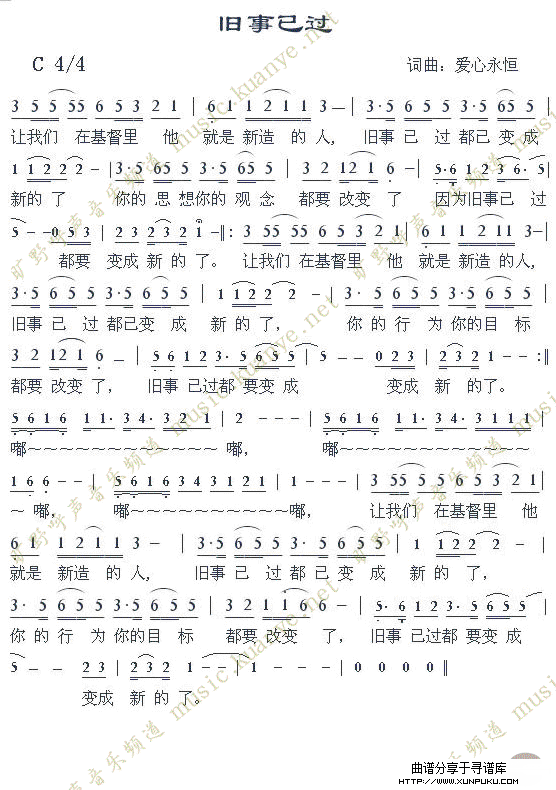 旧事已过
C 4/4 词曲：爱心永恒
3 5 5 55 6 5 3 2 1 | 6 1 1 2 1 1 3 — | 3·5 6 5 5 3·5 65 5 |
让我们 在基督里 他 就是新造 的人, 旧事 已 过 都已 变 成
1 1 2 2 2 — | 3·5 65 5 3·5 6 5 | 3 2 12 1 6 — | 5·6 1 2 3 5 6
新的 了 你的 思 想你的 观 念 都要 改变 了 因为旧事已 过
5 — 0 5 3 | 2 3 2 3 2 1 — ‖: 3 55 5 6 5 3 2 1 | 6 1 1 2 1 1 3— |
都要 变成 新 的 了。 让我们 在基督里 他 就是 新造 的人,
3·5 6 5 5 3·5 6 5 5 | 1 1 2 2 2 — | 3·5 6 5 5 3·5 6 5 |
旧事 已 过 都已变 成 新 的 了, 你 的 行 为 你的 目 标
3 2 12 1 6 — | 5 6 1 2 3· 5 6 5 | 5 — 0 2 3 | 2 3 2 1 — :‖
都要 改变 了, 旧事 已过都 要变 成 变成 新 的了。
5 6 1 6 1 1· 3 4· 3 2 1 | 2 — — — | 5 6 1 6 1 1· 3 4 3 1 1 1 |
嘟~~~~~~~~~~嘟, 嘟~~~~~~~~~
1 6 6 — — | 5 6 1 6 4 3 1 2 1 | 2 — — — | 3 55 5 6 5 3 2 1 |
~嘟, 嘟~~~~~~~~~~嘟, 让我们 在基督里 他
6 1 1 2 1 1 3 — | 3·5 6 5 5 3·5 6 5 5 | 1 1 2 2 2 — |
就是 新造 的 人, 旧事 已 过 都 已 变 成 新 的 了,
3·5 6 5 5 3·5 6 5 | 3 2 1 2 1 6 — | 5·6 1 2 3 5 6 5 |
你 的 行 为 你的目 标 都要 改变 了, 旧事 已过都 要变 成
5 — — 2 3 | 2 3 2 1 — | 1 — — — | 0 0 0 0 ‖
变成 新 的 了。
旷野呼声音乐频道 music.kuanye.net
曲谱分享于寻谱库
HTTP://WWW.XUNPUKU.COM